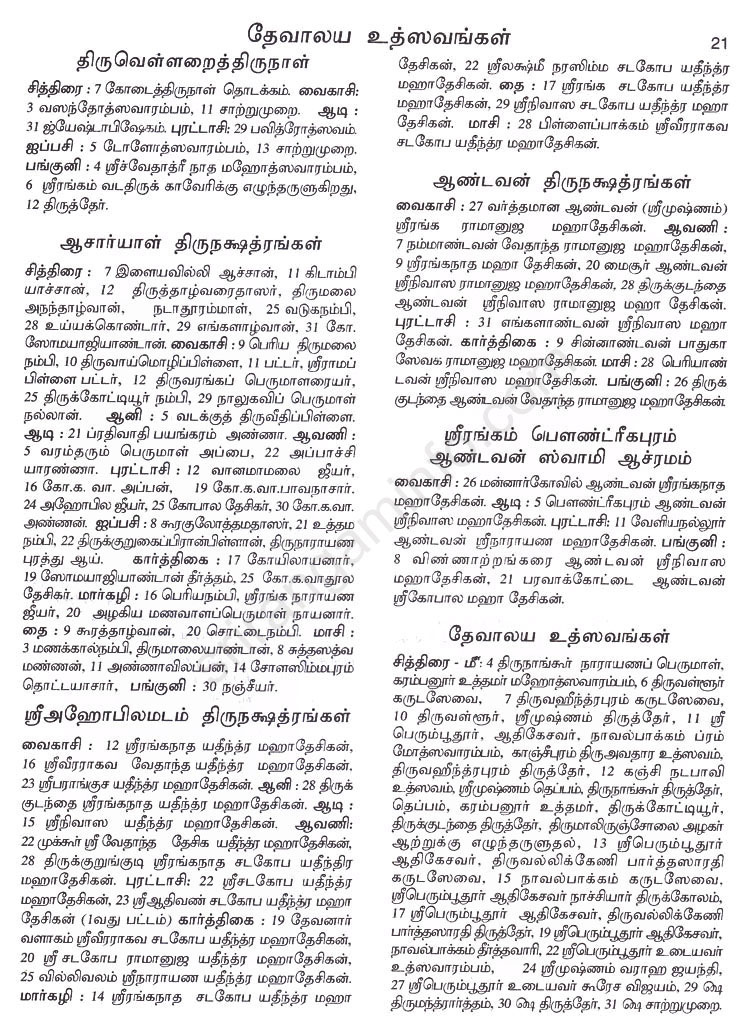 தேவாலய உத்ஸவங்கள்
21
திருவெள்ளறைத்திருநாள்
சித்திரை: 7 கோடைத்திருநாள் தொடக்கம். வைகாசி:
3 வஸந்தோத்ஸவாரம்பம், 11 சாற்றுமுறை. ஆடி :
31 ஜ்யேஷ்டாபிஷேகம். புரட்டாசி: 29 பவித்ரோத்ஸவம்.
ஐப்பசி : 5 டோளோத்ஸவாரம்பம், 13 சாற்றுமுறை.
பங்குனி : 4 ஸ்ரீச்வேதாத்ரீ நாத மஹோத்ஸவாரம்பம்,
6 ஸ்ரீரங்கம் வடதிருக் காவேரிக்கு எழுந்தருளுகிறது,
12 திருத்தேர்.
ஆசார்யாள் திருநக்ஷத்ரங்கள்
சித்திரை : 7 இளையவில்லி ஆச்சான், 11 கிடாம்பி
யாச்சான், 12 திருத்தாழ்வரைதாஸர், திருமலை
அநந்தாழ்வான், நடாதூரம்மாள், 25 வடுகநம்பி,
28 உய்யக்கொண்டார், 29 எங்களாழ்வான், 31 கோ.
ஸோமயாஜியாண்டான். வைகாசி : 9 பெரிய திருமலை
நம்பி, 10 திருவாய்மொழிப்பிள்ளை, 11 பட்டர், ஸ்ரீராமப்
பிள்ளை பட்டர், 12 திருவரங்கப் பெருமாளரையர்,
25 திருக்கோட்டியூர் நம்பி, 29 நாலுகவிப் பெருமாள்
நல்லான். ஆனி : 5 வடக்குத் திருவீதிப்பிள்ளை.
ஆடி : 21 ப்ரதிவாதி பயங்கரம் அண்ணா. ஆவணி :
5 வரம்தரும் பெருமாள் அப்பை, 22 அப்பாச்சி
யாரண்ணா. புரட்டாசி : 12 வானமாமலை ஜீயர்,
16 கோ.க. வா. அப்பன், 19 கோ.க.வா.பாவநாசார்.
24 அஹோபில ஜீயர், 25 கோபால தேசிகர், 30 கோ.க.வா.
அண்ணன். ஐப்பசி : 8 கூரகுலோத்தமதாஸர், 21 உத்தம
நம்பி, 22 திருக்குறுகைப்பிரான்பிள்ளான், திருநாராயண
புரத்து ஆய். கார்த்திகை : 17 கோயிலாயனார்,
19 ஸோமயாஜியாண்டான் தீர்த்தம், 25 கோ.க.வாதூல
தேசிகர். மார்கழி : 16 பெரியநம்பி, ஸ்ரீரங்க நாராயண
ஜீயர், 20 அழகிய மணவாளப்பெருமாள் நாயனார்.
தை : 9 கூரத்தாழ்வான், 20 சொட்டைநம்பி. மாசி :
3 மணக்கால்நம்பி, திருமாலையாண்டான், 8 சுத்தஸத்வ
மண்ணன், 11 அண்ணாவிலப்பன், 14 சோளஸிம்மபுரம்
தொட்டயாசார், பங்குனி : 30 நஞ்சீயர்.
ஸ்ரீஅஹோபிலமடம் திருநக்ஷத்ரங்கள்
வைகாசி : 12 ஸ்ரீரங்கநாத யதீந்த்ர மஹாதேசிகன்,
16 ஸ்ரீவீரராகவ வேதாந்த யதீந்த்ர மஹாதேசிகன்,
23 ஸ்ரீபராங்குச யதீந்த்ர மஹாதேசிகன். ஆனி : 28 திருக்
குடந்தை ஸ்ரீரங்கநாத யதீந்த்ர மஹாதேசிகன். ஆடி :
15 ஸ்ரீநிவாஸ யதீந்த்ர மஹாதேசிகன். ஆவணி:
22 முக்கூர் ஸ்ரீ வேதாந்த தேசிக யதீந்த்ர மஹாதேசிகன்,
28 திருக்குறுங்குடி ஸ்ரீரங்கநாத சடகோப யதீந்திர
மஹாதேசிகன். புரட்டாசி: 22 ஸ்ரீசடகோப யதீந்த்ர
மஹாதேசிகன், 23 ஸ்ரீஆதிவண் சடகோப யதீந்த்ர மஹா
தேசிகன் (1வது பட்டம்) கார்த்திகை : 19 தேவனார்
வளாகம் ஸ்ரீவீரராகவ சடகோப யதீந்த்ர மஹாதேசிகன்,
20 ஸ்ரீ சடகோப ராமாநுஜ யதீந்த்ர மஹாதேசிகன்.
25 வில்லிவலம் ஸ்ரீநாராயண யதீந்த்ர மஹாதேசிகன்.
மார்கழி : 14 ஸ்ரீரங்கநாத சடகோப யதீந்த்ர மஹா
தேசிகன், 22 ஸ்ரீலக்ஷ்மீ நரஸிம்ம சடகோப யதீந்த்ர
மஹாதேசிகன். தை : 17 ஸ்ரீரங்க சடகோப யதீந்த்ர
மஹாதேசிகன், 29 ஸ்ரீநிவாஸ சடகோப யதீந்த்ர மஹா
தேசிகன். மாசி : 28 பிள்ளைப்பாக்கம் ஸ்ரீவீரராகவ
சடகோப யதீந்த்ர மஹாதேசிகன்.
ஆண்டவன் திருநக்ஷத்ரங்கள்
வைகாசி : 27 வர்த்தமான ஆண்டவன் (ஸ்ரீமுஷ்ணம்)
ஸ்ரீரங்க ராமானுஜ மஹாதேசிகன். ஆவணி :
7 நம்மாண்டவன் வேதாந்த ராமானுஜ மஹாதேசிகன்,
9 ஸ்ரீரங்கநாத மஹா தேசிகன், 20 மைசூர் ஆண்டவன்
ஸ்ரீநிவாஸ ராமானுஜ மஹாதேசிகன், 28 திருக்குடந்தை
ஆண்டவன் ஸ்ரீநிவாஸ ராமானுஜ மஹா தேசிகன்.
புரட்டாசி : 31 எங்களாண்டவன் ஸ்ரீநிவாஸ மஹா
தேசிகன். கார்த்திகை : 9 சின்னாண்டவன் பாதுகா
ஸேவக ராமானுஜ மஹாதேசிகன். மாசி : 28 பெரியாண்
டவன் ஸ்ரீநிவாஸ மஹாதேசிகன். பங்குனி : 26 திருக்
குடந்தை ஆண்டவன் வேதாந்த ராமானுஜ மஹாதேசிகன்.
ஸ்ரீரங்கம் பௌண்ட்ரீகபுரம்
ஆண்டவன் ஸ்வாமி ஆச்ரமம்
வைகாசி : 26 மன்னார்கோவில் ஆண்டவன் ஸ்ரீரங்கநாத
மஹாதேசிகன். ஆடி : 5 பௌண்ட்ரீகபுரம் ஆண்டவன்
ஸ்ரீநிவாஸ மஹாதேசிகன். புரட்டாசி: 11 வேளியநல்லூர்
ஆண்டவன் ஸ்ரீநாராயண மஹாதேசிகன். பங்குனி :
8 விண்ணாற்றங்கரை ஆண்டவன் ஸ்ரீநிவாஸ
மஹாதேசிகன், 21 பரவாக்கோட்டை ஆண்டவன்
ஸ்ரீகோபால மஹா தேசிகன்.
தேவாலய உத்ஸவங்கள்
சித்திரை - மீ: 4 திருநாங்கூர் நாராயணப் பெருமாள்,
கரம்பனூர் உத்தமர் மஹோத்ஸவாரம்பம், 6 திருவள்ளூர்
கருடஸேவை, 7 திருவஹீந்த்ரபுரம் கருடஸேவை,
10 திருவள்ளூர், ஸ்ரீமுஷ்ணம் திருத்தேர், 11 ஸ்ரீ
பெரும்பூதூர், ஆதிகேசவர், நாவல்பாக்கம் ப்ரம்
மோத்ஸவாரம்பம், காஞ்சீபுரம் திருஅவதார உத்ஸவம்,
திருவஹீந்த்ரபுரம் திருத்தேர், 12 கஞ்சி நடபாவி
உத்ஸவம், ஸ்ரீமுஷ்ணம் தெப்பம், திருநாங்கூர் திருத்தேர்,
தெப்பம், கரம்பனூர் உத்தமர், திருக்கோட்டியூர்,
திருக்குடந்தை திருத்தேர், திருமாலிருஞ்சோலை அழகர்
ஆற்றுக்கு எழுந்தருளுதல், 13 ஸ்ரீபெரும்பூதூர்
ஆதிகேசவர், திருவல்லிக்கேணி பார்த்தஸாரதி
கருடஸேவை, 15 நாவல்பாக்கம் கருடஸேவை,
ஸ்ரீபெரும்பூதூர் ஆதிகேசவர் நாச்சியார் திருக்கோலம்,
17 ஸ்ரீபெரும்பூதூர் ஆதிகேசவர், திருவல்லிக்கேணி
பார்த்தஸாரதி திருத்தேர், 19 ஸ்ரீபெரும்பூதூர் ஆதிகேசவர்,
நாவல்பாக்கம் தீர்த்தவாரி, 22 ஸ்ரீபெரும்பூதூர் உடையவர்
உத்ஸவாரம்பம், 24 ஸ்ரீமுஷ்ணம் வராஹ ஜயந்தி,
27 ஸ்ரீபெரும்பூதூர் உடையவர் கூரேச விஜயம், 29 ஷெ
திருமந்த்ரார்த்தம், 30 ஷெ திருத்தேர், 31 ஷெ சாற்றுமுறை.